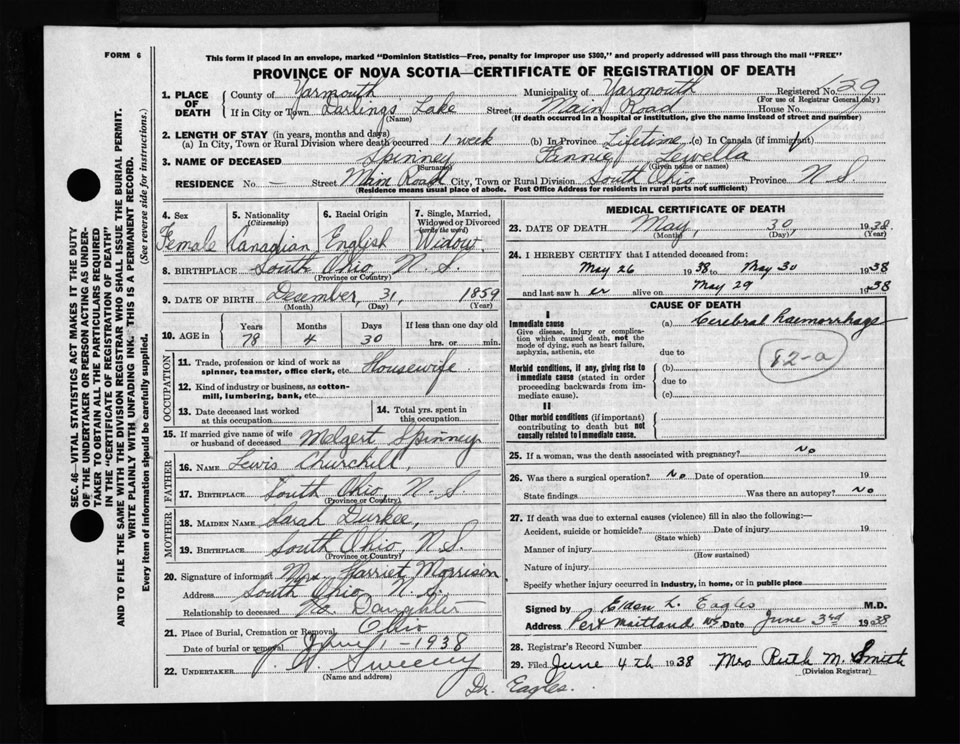 FORM 6
This form if placed in an envelope, marked "Dominion Statistics—Free, penalty for improper use $300," and properly addressed will pass through the mail "FREE"
PROVINCE OF NOVA SCOTIA—CERTIFICATE OF REGISTRATION OF DEATH
1. PLACE OF DEATH County of Yarmouth Municipality of Yarmouth Registered No. 129
(For use of Registrar General only)
If in City or Town Darlings Lake Street Main Road House No.
(Name) (If death occurred in a hospital or institution, give the name instead of street and number)
2. LENGTH OF STAY (in years, months and days)
(a) In City, Town or Rural Division where death occurred 1 week (b) In Province Lifetime (c) In Canada (if immigrant)
3. NAME OF DECEASED Spinney Fannie Lewella
(Surname) (Given name or names)
RESIDENCE No. — Street Main Road City, Town or Rural Division South Ohio Province N S
(Residence means usual place of abode. Post Office Address for residents in rural parts not sufficient)
4. Sex Female
5. Nationality (Citizenship) Canadian
6. Racial Origin English
7. Single, Married, Widowed or Divorced (write the word) Widow.
8. BIRTHPLACE South Ohio, N. S.
(Province or Country)
9. DATE OF BIRTH December, 31, 1859
(Month) (Day) (Year)
10. AGE in Years 78 Months 4 Days 30 If less than one day old hrs. or min.
OCCUPATION
11. Trade, profession or kind of work as spinner, teamster, office clerk, etc. Housewife
12. Kind of industry or business, as cotton-mill, lumbering, bank, etc.
13. Date deceased last worked at this occupation
14. Total yrs. spent in this occupation
15. If married give name of wife or husband of deceased Melgert Spinney
FATHER
16. NAME Lewis Churchill,
17. BIRTHPLACE South Ohio, N. S.
(Province or Country)
MOTHER
18. MAIDEN NAME Sarah Durkee,
19. BIRTHPLACE South Ohio, N.S.
(Province or Country)
20. Signature of informant Mrs Harriet Morrison
Address South Ohio, N. S.
Relationship to deceased Daughter
21. Place of Burial, Cremation or Removal Ohio
Date of burial or removal June 1 - 1938
22. UNDERTAKER Sweeny
(Name and address)
MEDICAL CERTIFICATE OF DEATH
23. DATE OF DEATH May, 30, 1938.
(Month) (Day) (Year)
24. I HEREBY CERTIFY that I attended deceased from:
May 26 1938 to May 30 1938
and last saw her alive on May 29 1938
CAUSE OF DEATH
I
Immediate cause
Give disease, injury or complication which caused death, not the mode of dying, such as heart failure, asphyxia, asthenia, etc
(a) Cerebral haemorrhage
due to
82-a
Morbid conditions, if any, giving rise to immediate cause (stated in order proceeding backwards from immediate cause).
(b)
due to
(c)
II
Other morbid conditions (if important) contributing to death but not causally related to immediate cause.
25. If a woman, was the death associated with pregnancy? No
26. Was there a surgical operation? No Date of operation 19
State findings Was there an autopsy? No
27. If death was due to external causes (violence) fill in also the following:—
Accident, suicide or homicide? Date of injury 19
(State which)
Manner of injury
(How sustained)
Nature of injury
Specify whether injury occurred in industry, in home, or in public place
Signed by Elden L. Eagles M.D.
Address Port Maitland NS Date June 3rd 1938
28. Registrar's Record Number
29. Filed June 4th 1938 Mrs Ruth M. Smith
(Division Registrar)
Dr. Eagles.
SEC. 46—VITAL STATISTICS ACT MAKES IT THE DUTY
OF THE UNDERTAKER OR PERSON ACTING AS UNDER-
TAKER TO OBTAIN ALL THE PARTICULARS REQUIRED
IN THE "CERTIFICATE OF REGISTRATION OF DEATH"
AND TO FILE THE SAME WITH THE DIVISION REGISTRAR WHO SHALL ISSUE THE BURIAL PERMIT.
WRITE PLAINLY WITH UNFADING INK. THIS IS A PERMANENT RECORD.
Every item of information should be carefully supplied. (See reverse side for instructions.)